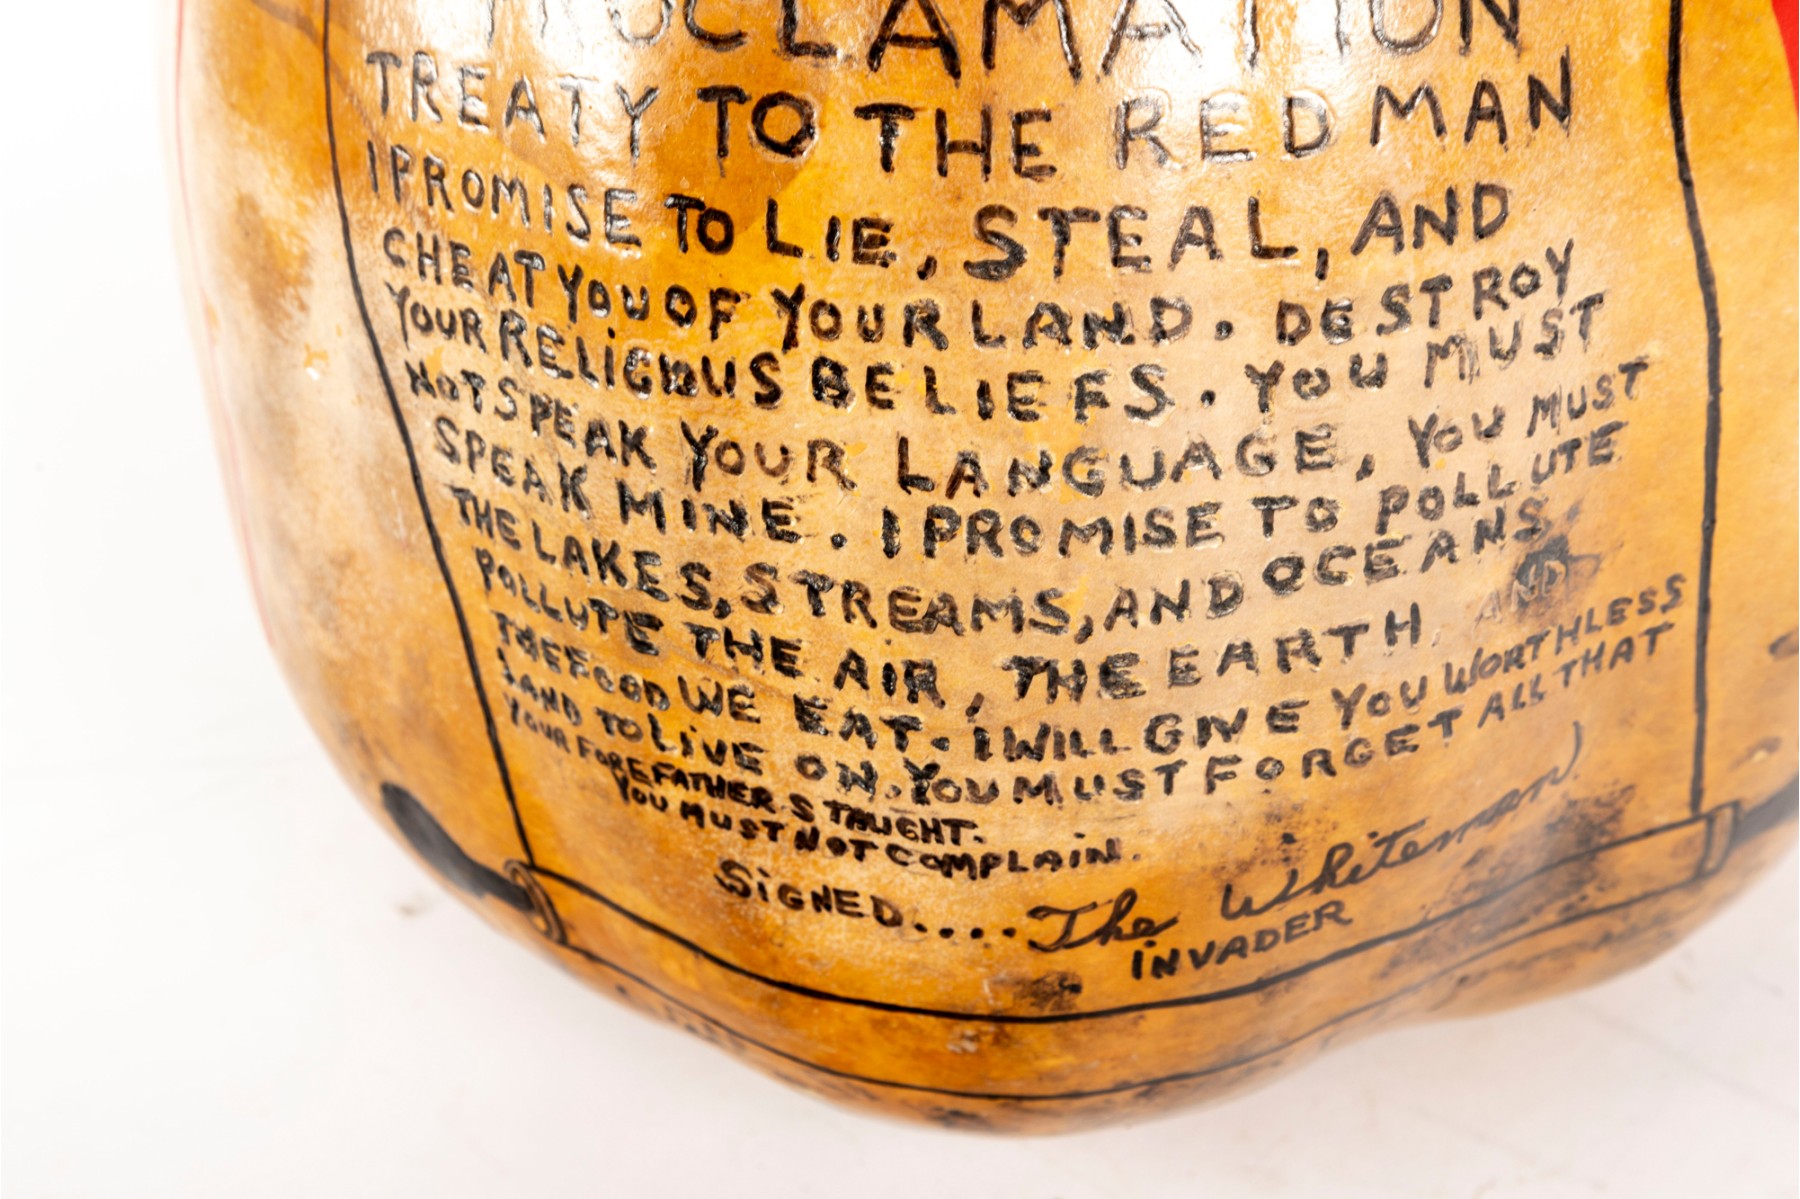 PROCLAMATION
TREATY TO THE RED MAN
I PROMISE TO LIE, STEAL, AND
CHEAT YOU OF YOUR LAND. DESTROY
YOUR RELIGIOUS BELIEFS. YOU MUST
NOT SPEAK YOUR LANGUAGE, YOU MUST
SPEAK MINE. I PROMISE TO POLLUTE
THE LAKES, STREAMS, AND OCEANS.
POLLUTE THE AIR, THE EARTH AND
THE FOOD WE EAT. I WILL GIVE YOU WORTHLESS
LAND TO LIVE ON. YOU MUST FORGET ALL THAT
YOUR FOREFATHERS TAUGHT.
YOU MUST NOT COMPLAIN.
SIGNED..... The Whiteman
INVADER